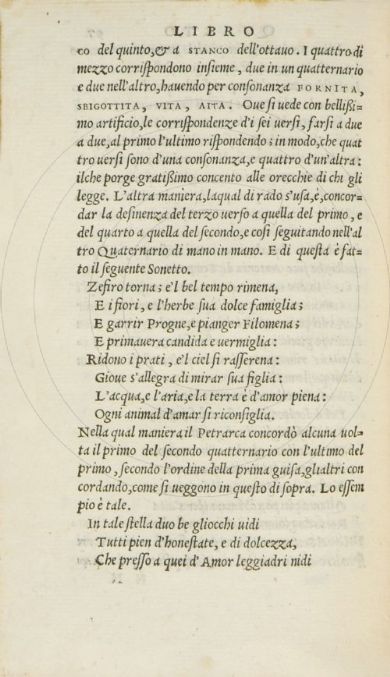 LIBRO
co del quinto, & a STANCO dell'ottauo. I quattro di
mezzo corriſpondono inſieme, due in un quatternario
e due nell'altro, hauendo per conſonanza FORNITA,
SBIGOTTITA, VITA, AITA. Oue ſi uede con belliſſi-
mo artificio, le corriſpondenze d'i ſei uerſi, farſi a due
a due, al primo l'ultimo riſpondendo; in modo, che quat
tro uerſi ſono d'una conſonanza, e quattro d'un'altra:
ilche porge gratiſſimo concento alle orecchie di chi gli
legge. L'altra maniera, laqual di rado s'uſa, è, concor-
dar la deſinenza del terzo uerſo a quella del primo, e
del quarto a quella del ſecondo, e coſi ſeguitando nell'al
tro Quaternario di mano in mano. E di queſta è fat-
to il ſeguente Sonetto.
Zefiro torna; e'l bel tempo rimena,
E i fiori, e l'herbe ſua dolce famiglia;
E garrir Progne, e pianger Filomena;
E primauera candida e uermiglia:
Ridono i prati, e'l ciel ſi raſſerena:
Gioue s'allegra di mirar ſua figlia:
L'acqua, e l'aria, e la terra è d'amor piena:
Ogni animal d'amar ſi riconſiglia.
Nella qual maniera il Petrarca concordò alcuna uol-
ta il primo del ſecondo quatternario con l'ultimo del
primo, ſecondo l'ordine della prima guiſa, gli altri con
cordando, come ſi ueggono in queſto di ſopra. Lo eſſem
pio è tale.
In tale ſtella duo be gliocchi uidi
Tutti pien d'honeſtate, e di dolcezza,
Che preſſo a quei d'Amor leggiadri nidi